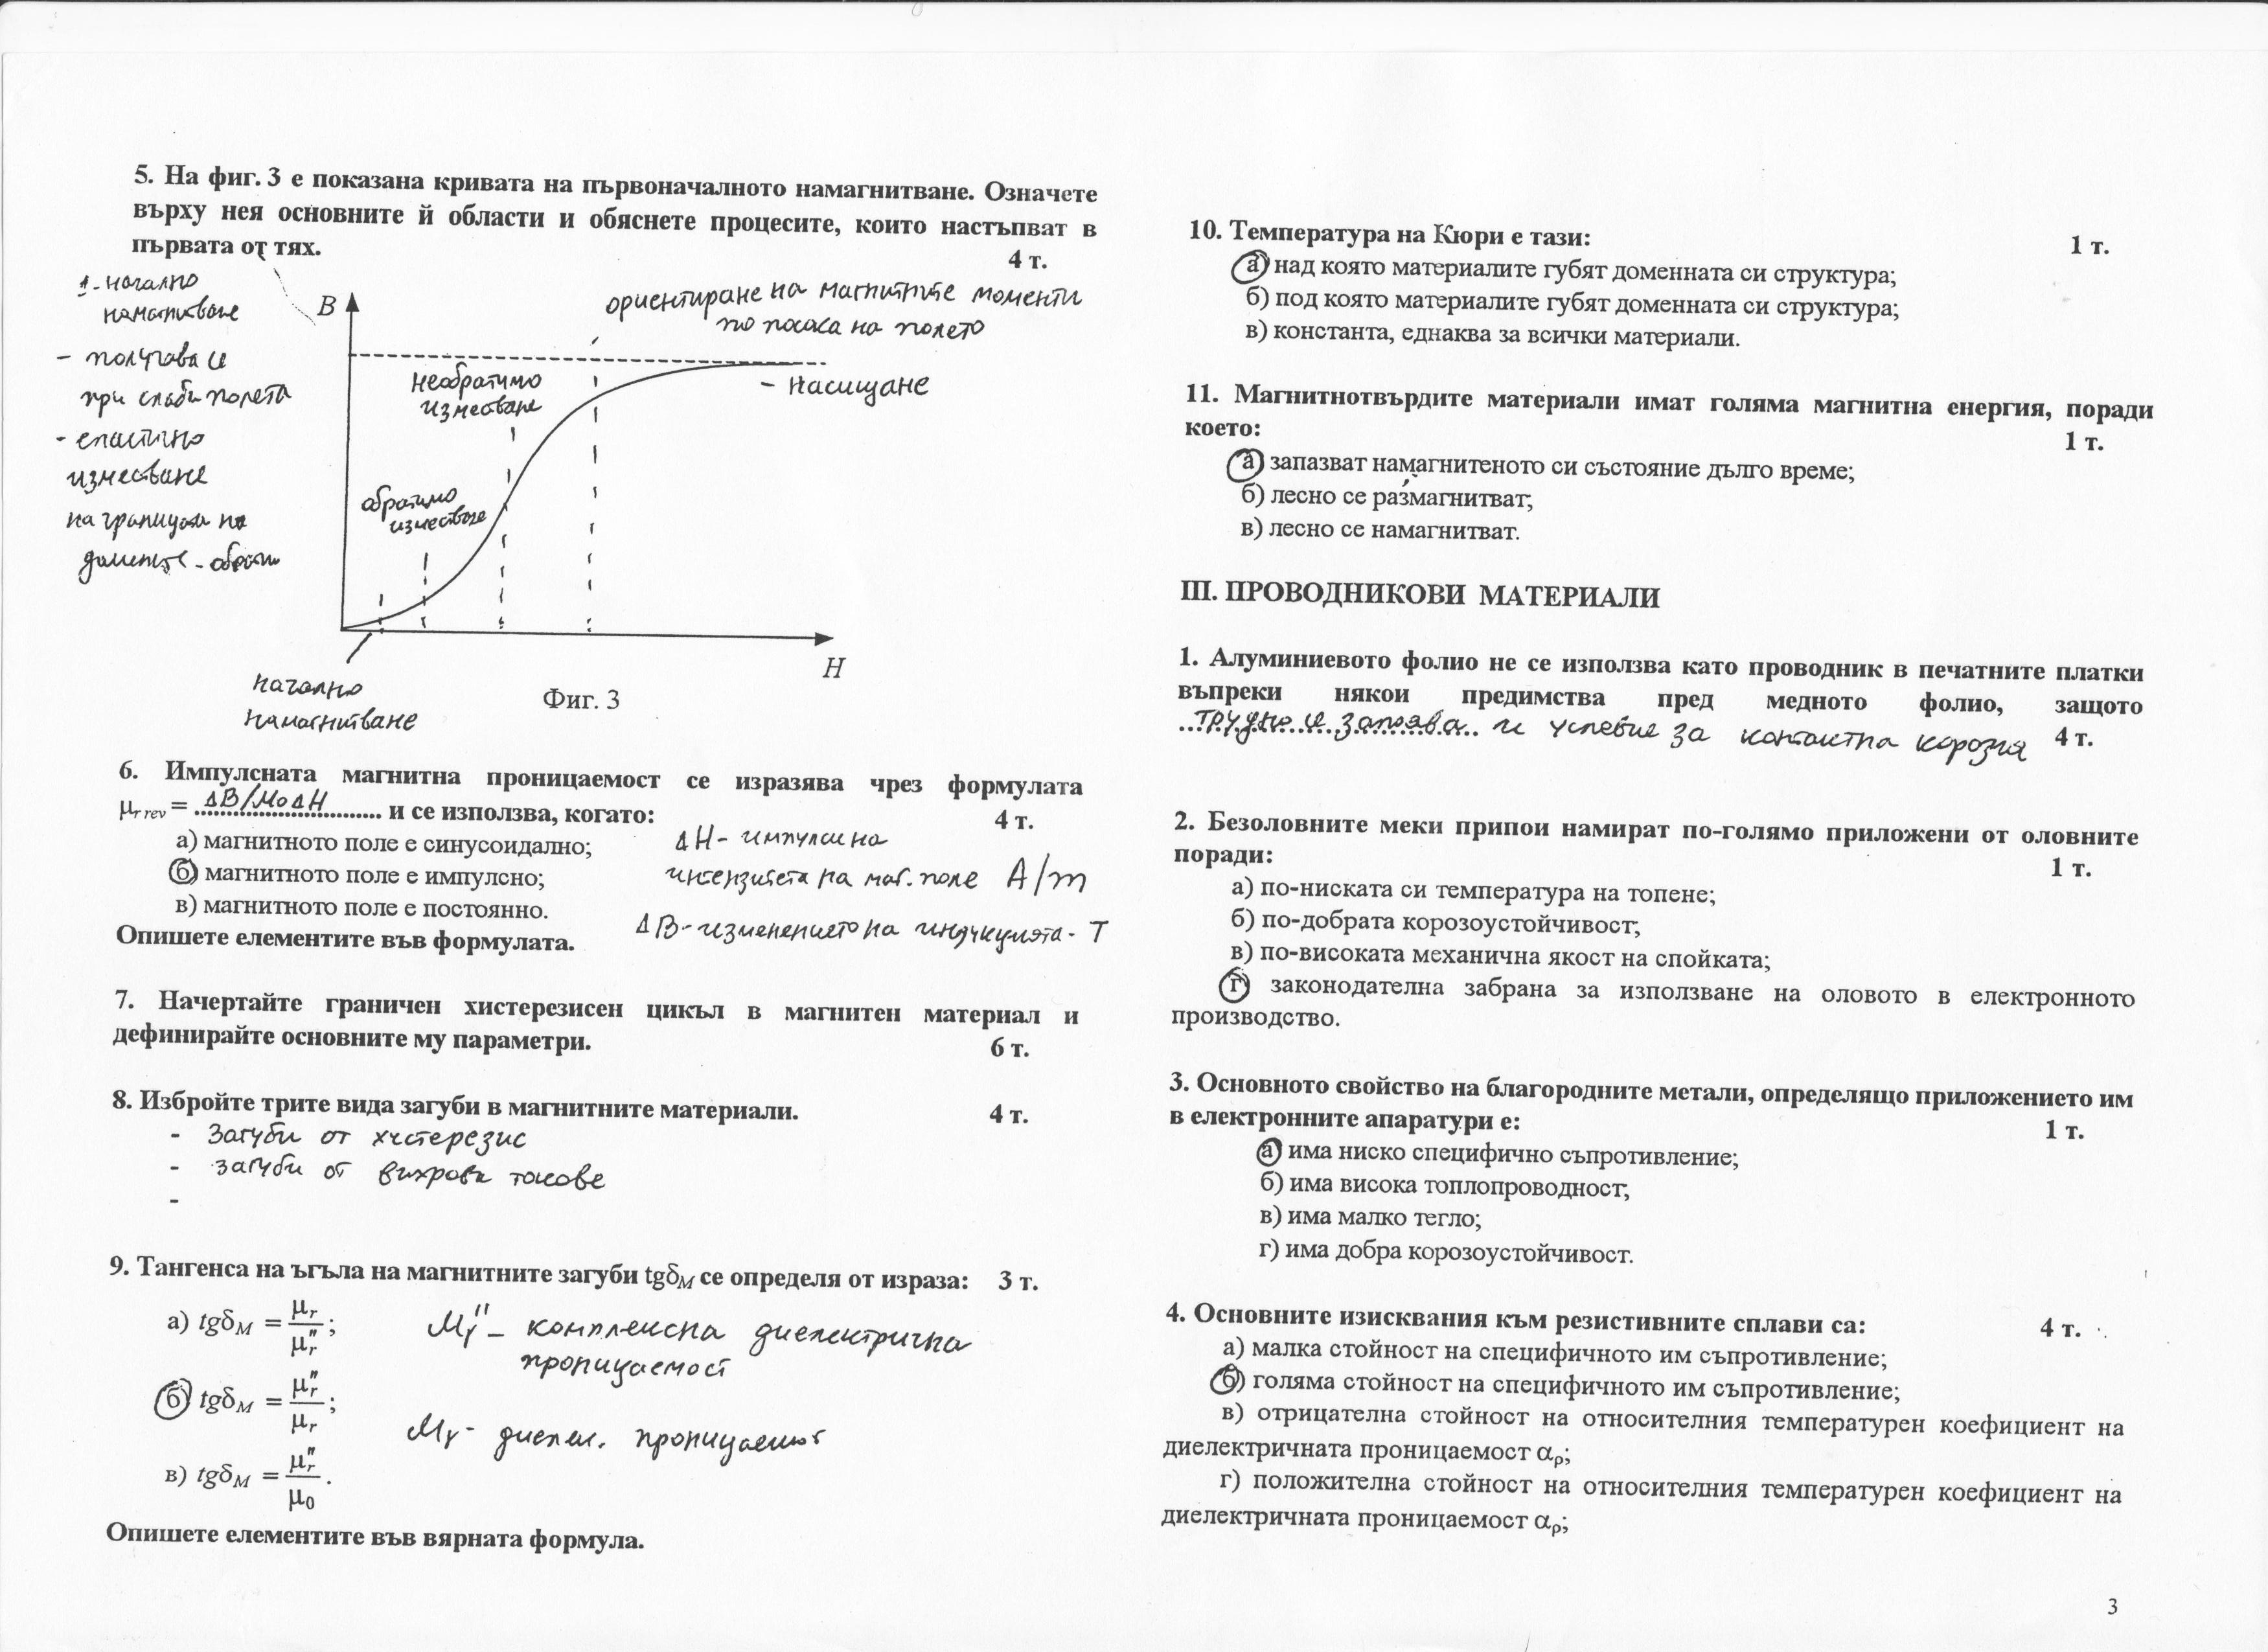 5. На фиг. 3 е показана кривата на първоначалното намагнитване. Означете
върху нея основните й области и обяснете процесите, които настъпват в
първата от тях.
4 т.
1 - начално
намагнитване
- получава се
при слаби полета
- еластично
изместване
на границите на
домените - обрат
B
ориентиране на магнитните моменти
по посока на полето
необратимо
изместване
- насищане
обратимо
изместване
H
начално
намагнитване
Фиг. 3
6. Импулсната магнитна проницаемост се изразява чрез формулата
μr rev = ΔB/μ0ΔH и се използва, когато:
4 т.
а) магнитното поле е синусоидално;
б) магнитното поле е импулсно;
в) магнитното поле е постоянно.
Опишете елементите във формулата.
ΔH - импулси на
интензитета на маг. поле A/m
ΔB - изменението на индукцията - T
7. Начертайте граничен хистерезисен цикъл в магнитен материал и
дефинирайте основните му параметри.
6 т.
8. Избройте трите вида загуби в магнитните материали.
4 т.
- загуби от хистерезис
- загуби от вихрови токове
-
9. Тангенса на ъгъла на магнитните загуби tgδM се определя от израза: 3 т.
а) tgδM = μr / μr″;
б) tgδM = μr″ / μr;
в) tgδM = μr″ / μ0.
μr″ - комплексна диелектрична
проницаемост
μr - диел. проницаемост
Опишете елементите във вярната формула.
10. Температура на Кюри е тази:
1 т.
а) над която материалите губят доменната си структура;
б) под която материалите губят доменната си структура;
в) константа, еднаква за всички материали.
11. Магнитнотвърдите материали имат голяма магнитна енергия, поради
което:
1 т.
а) запазват намагнитеното си състояние дълго време;
б) лесно се размагнитват;
в) лесно се намагнитват.
III. ПРОВОДНИКОВИ МАТЕРИАЛИ
1. Алуминиевото фолио не се използва като проводник в печатните платки
въпреки някои предимства пред медното фолио, защото
трудно се запоява и условие за контактна корозия 4 т.
2. Безоловните меки припои намират по-голямо приложени от оловните
поради:
1 т.
а) по-ниската си температура на топене;
б) по-добрата корозоустойчивост;
в) по-високата механична якост на спойката;
г) законодателна забрана за използване на оловото в електронното
производство.
3. Основното свойство на благородните метали, определящо приложението им
в електронните апаратури е:
1 т.
а) има ниско специфично съпротивление;
б) има висока топлопроводност;
в) има малко тегло;
г) има добра корозоустойчивост.
4. Основните изисквания към резистивните сплави са:
4 т.
а) малка стойност на специфичното им съпротивление;
б) голяма стойност на специфичното им съпротивление;
в) отрицателна стойност на относителния температурен коефициент на
диелектричната проницаемост αρ;
г) положителна стойност на относителния температурен коефициент на
диелектричната проницаемост αρ;
3